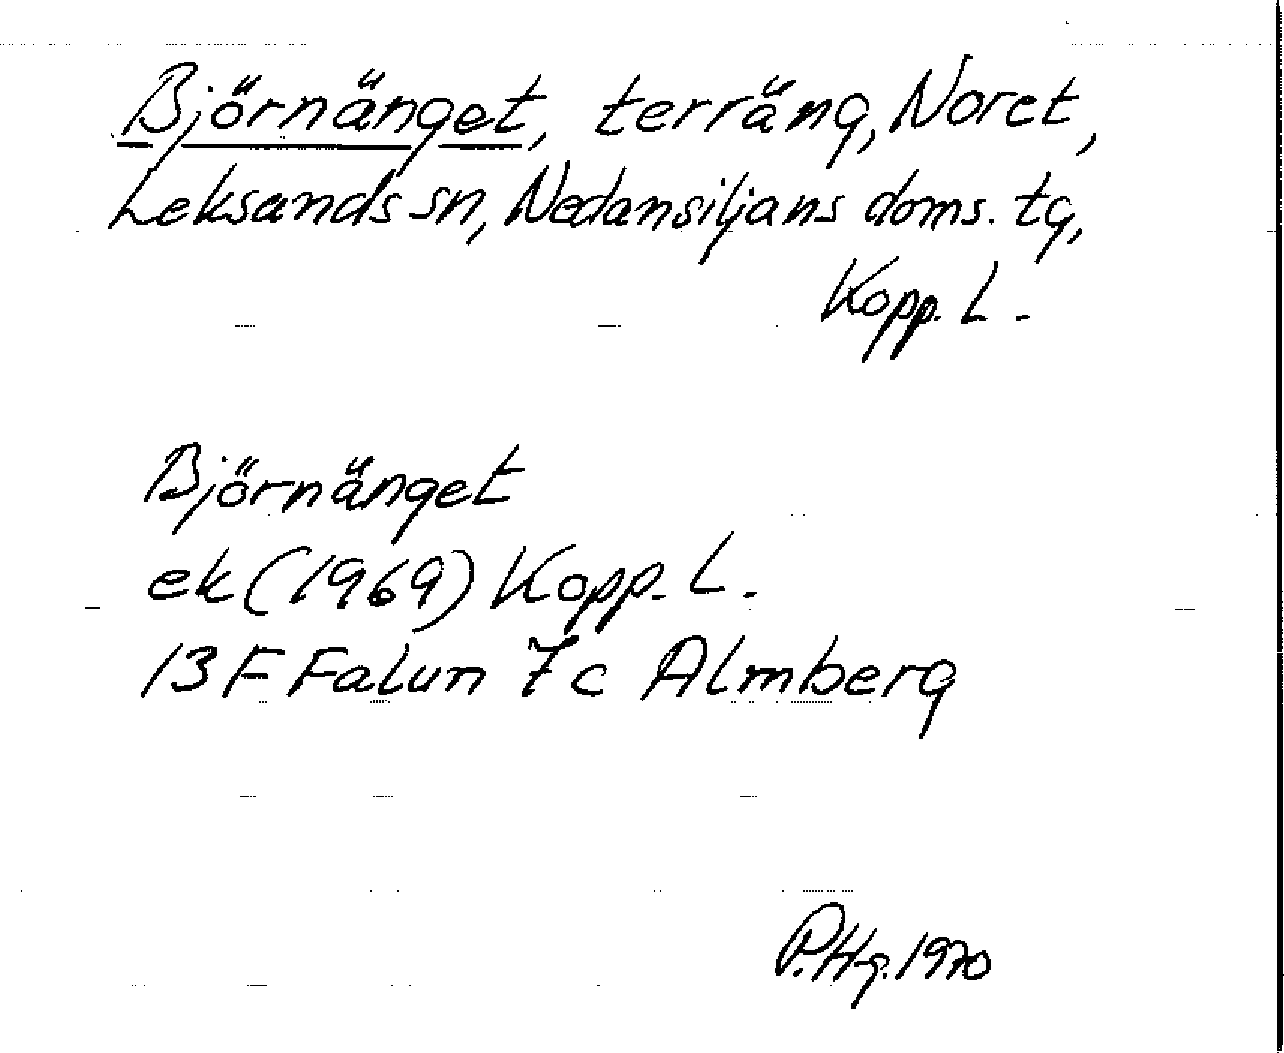 Björnänget, terräng, Noret,
Leksands sn, Nedansiljans doms. tg,
Kopp. L.
Björnänget
ek (1969) Kopp. L.
13 F Falun 7c Almberg
P.Hg. 1970